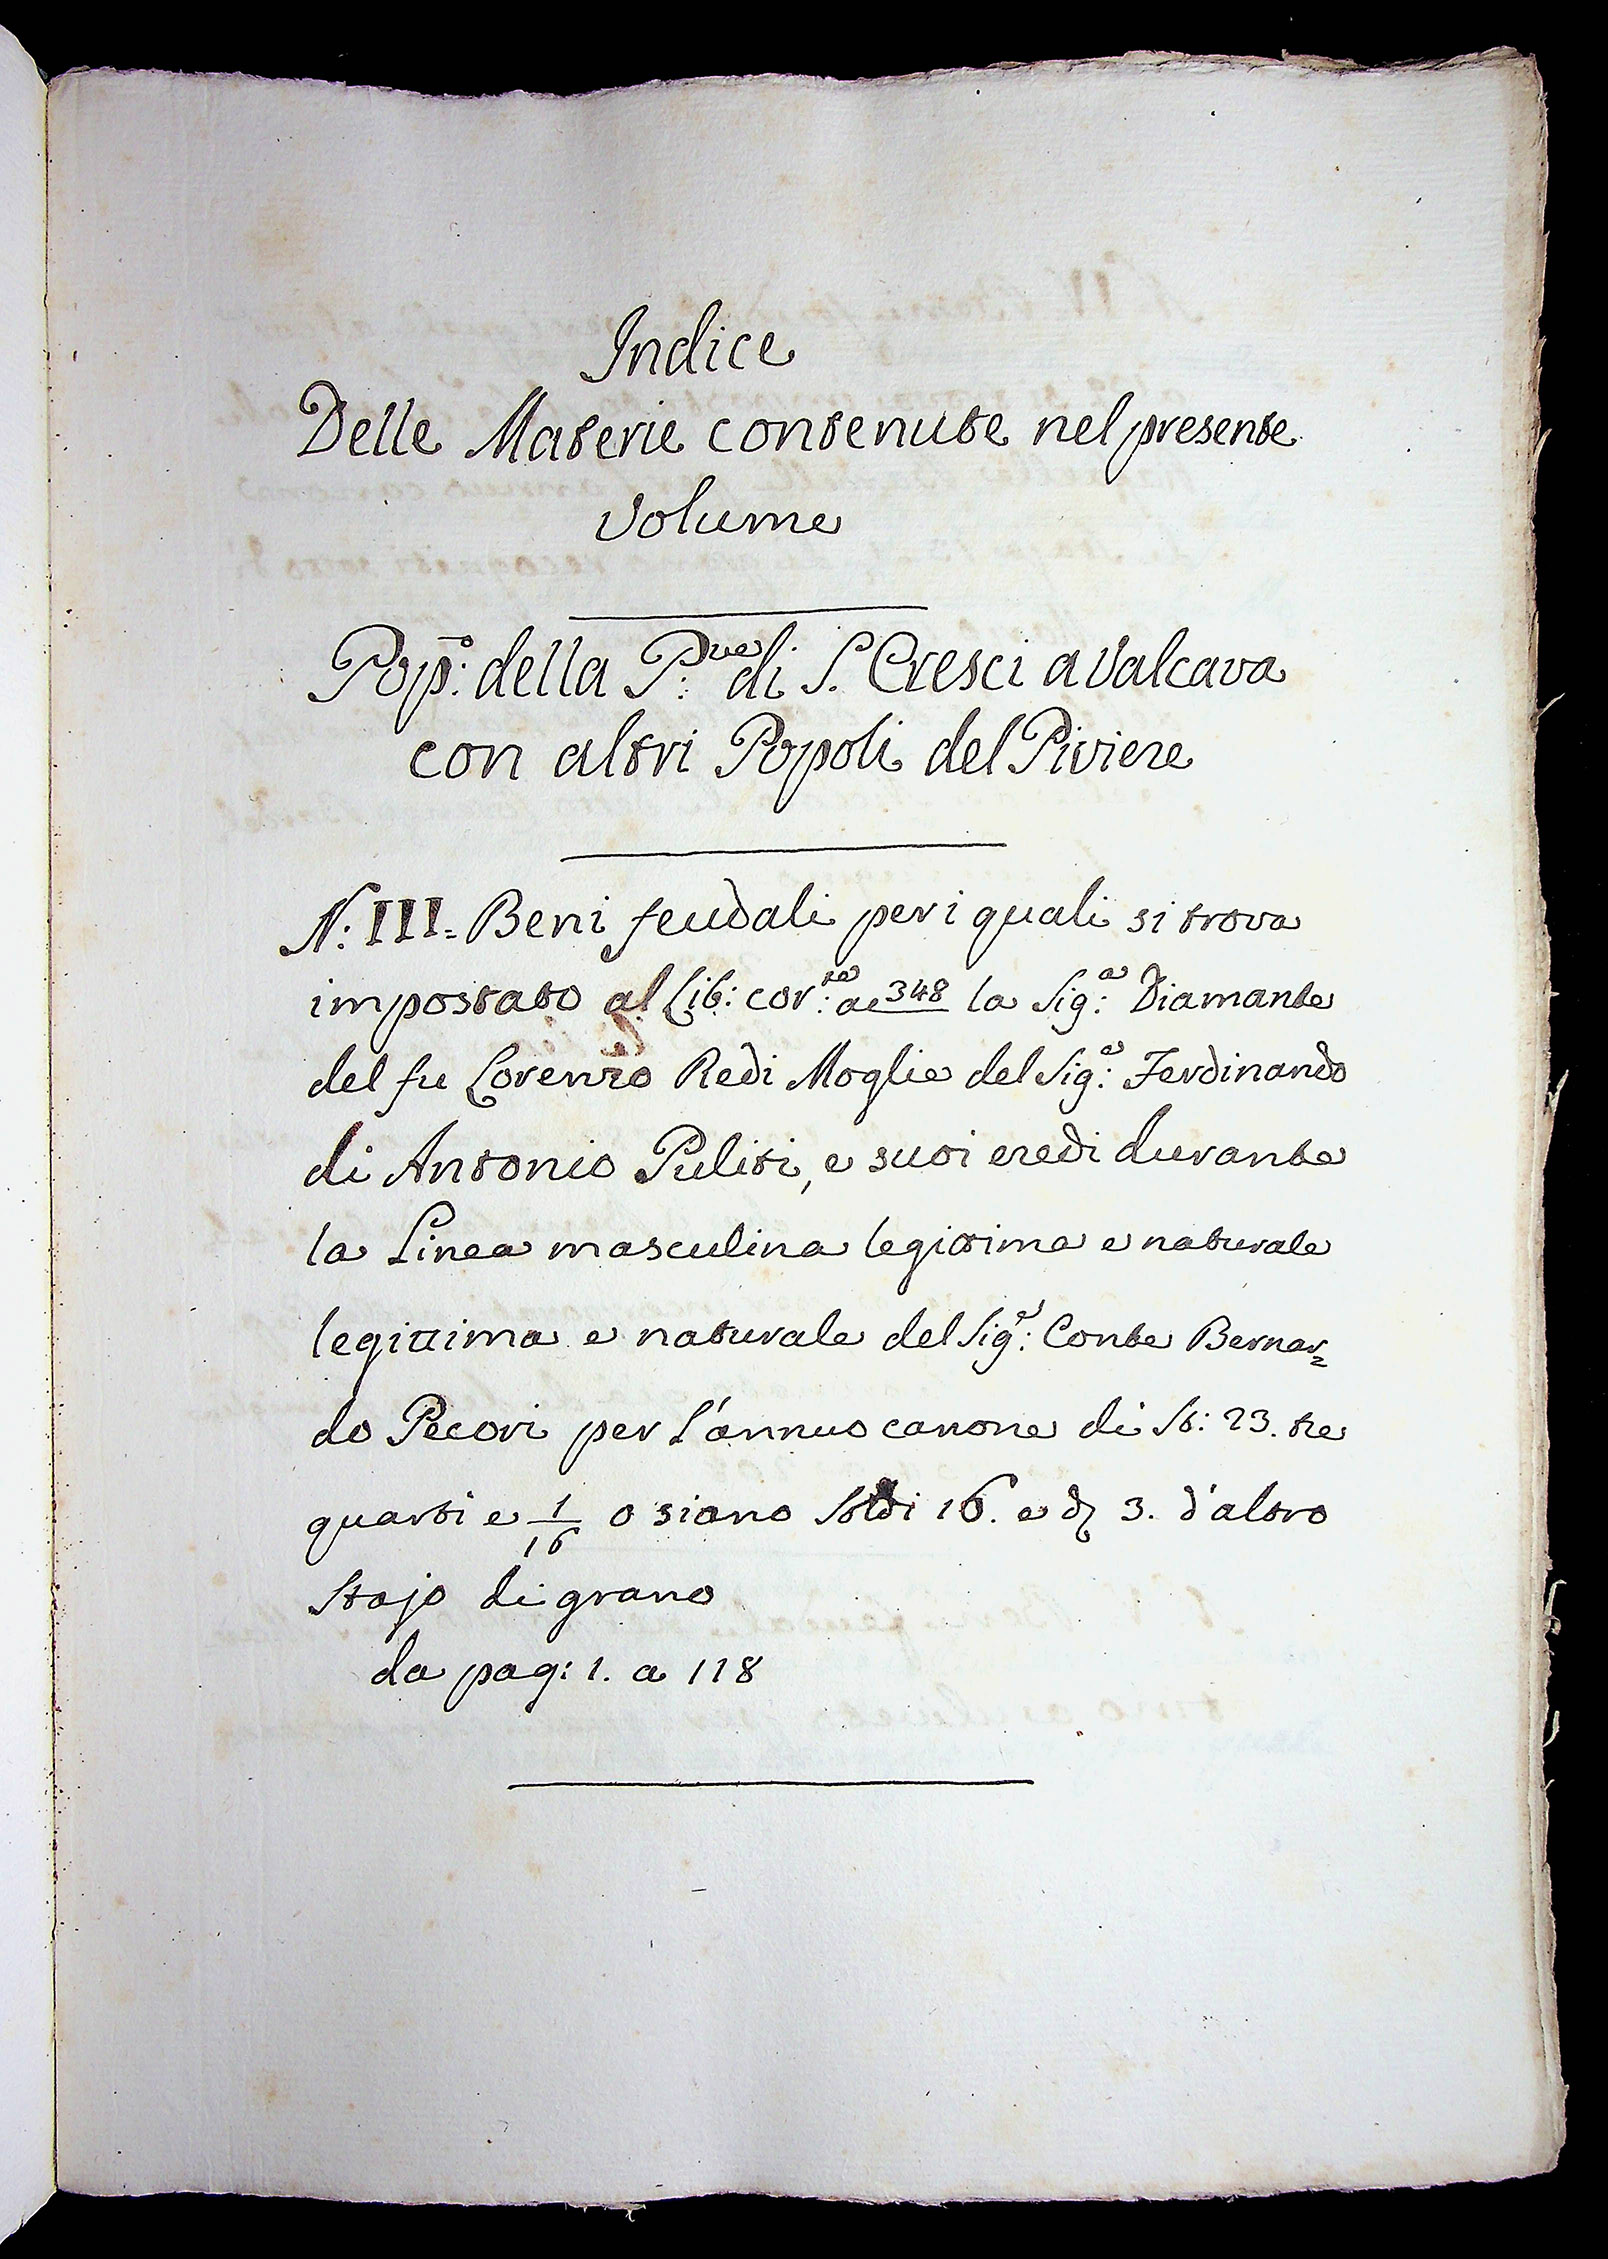 Indice
Delle Materie contenute nel presente
Volume
Pop:º della P:ve di S. Cresci a Valcava
con altri Popoli del Piviere
N: III. Beni feudali per i quali si trova
impostato al Lib: cor:te a 348 la Sig:a Diamante
del fu Lorenzo Redi Moglie del Sig:e Ferdinando
di Antonio Puliti, e suoi eredi durante
la Linea masculina legittima e naturale
legittima e naturale del Sig:e Conte Bernar=
do Pecori per l'annuo canone di St: 23. tre
quarti e 1/16 o siano Soldi 16. e d 3. d'altro
Stajo di grano
da pag: 1. a 118